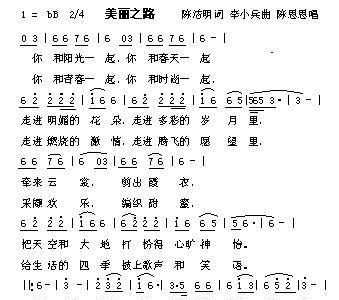 1 = bB 2/4 美丽之路 陈涛明词 李小兵曲 陈思思唱
0 3 | 6 6 7 6 | 6 0 3 | 6 6 7 6 | 6 - |
你 和阳光一起, 你 和春天一起
你 和青春一起, 你 和时尚一起,
6 2 2 2 2 | 1 6 | 6 2 2 2 2 | 1 6 6 5 | 5 6 5 3 · | 3 - |
走进 明媚的 花 朵, 走进 多彩的 岁 月 里,
走进 燃烧的 激 情, 走进 腾飞的 愿 望 里,
6 6 7 6 | 6 0 3 | 6 6 7 6 | 6 - |
牵来 云 裳, 剪出 霞 衣,
采撷 欢 乐, 编织 甜 蜜,
6 2 2 2 2 | 1 6 | 6 2 2 2 1 | 1 6 6 5 | 5 6 · | 6 - |
把天 空和 大 地 打 扮得 心旷 神 怡。
给生 活的 四 季 披上歌声 和 笑 语。